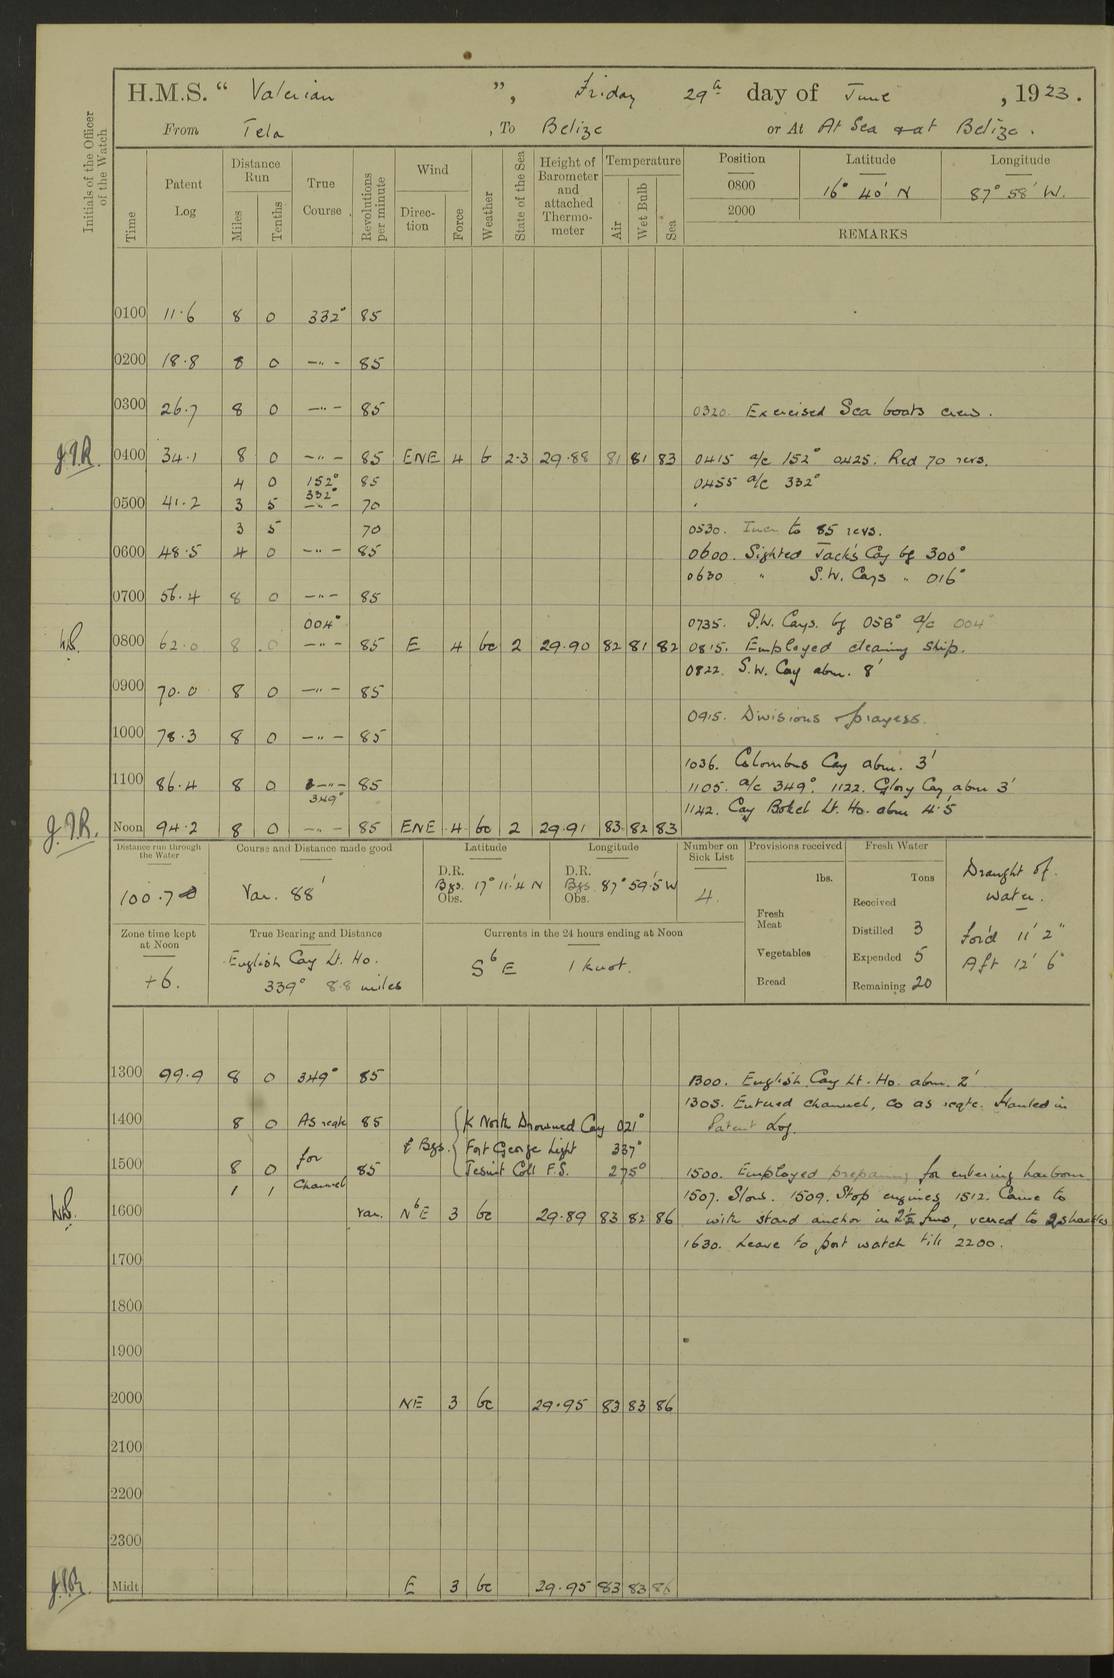 H.M.S. “ Valerian ”, Friday 29th day of June, 1923.
From Tela, To Belize or At At Sea & at Belize.
Initials of the Officer of the Watch
Time
Patent Log
Distance Run
Miles
Tenths
True Course
Revolutions per minute
Wind
Direction
Force
Weather
State of the Sea
Height of Barometer and attached Thermometer
Temperature
Air
Wet Bulb
Sea
Position Latitude Longitude
0800 16° 40' N 87° 58' W.
2000
REMARKS
0100 11.6 8 0 332° 85
0200 18.8 8 0 — " — 85
0300 26.7 8 0 — " — 85 0320. Exercised Sea boats crew.
J.J.R. 0400 34.1 8 0 — " — 85 ENE 4 b 2.3 29.88 81 81 83 0415 a/c 152° 0425. Red 70 revs.
4 0 152° 85 0455 a/c 332°
332°
0500 41.2 3 5 — " — 70
3 5 70 0530. Incr. to 85 revs.
0600 48.5 4 0 — " — 85 0600. Sighted Jack's Cay bg 300°
0630 " S.W. Cays " 016°
0700 56.4 8 0 — " — 85
004° 0735. S.W. Cays. bg 058° a/c 004°
0800 62.0 8 0 — " — 85 E 4 bc 2 29.90 82 81 82 0815. Employed cleaning ship.
0822. S.W. Cay abm. 8'
0900 70.0 8 0 — " — 85
0915. Divisions & prayers.
1000 78.3 8 0 — " — 85
1036. Columbus Cay abm. 3'
1100 86.4 8 0 — " — 85 1105. a/c 349°. 1122. Glory Cay abm 3'
349° 1142. Cay Bokel Lt. Ho. abm 4.5'
J.J.R. Noon 94.2 8 0 — " — 85 ENE 4 bc 2 29.91 83 82 83
Distance run through the Water
100.7
Course and Distance made good
Var. 88'
Latitude
D.R.
Bgs. 17° 11'.4 N
Obs.
Longitude
D.R.
Bgs 87° 59'.5 W
Obs.
Number on Sick List
4.
Provisions received
lbs.
Fresh Meat
Vegetables
Bread
Fresh Water
Tons
Received
Distilled 3
Expended 5
Remaining 20
Draught of water.
For'd 11' 2"
Aft 12' 6"
Zone time kept at Noon
+6.
True Bearing and Distance
English Cay Lt. Ho.
339° 8.8 miles
Currents in the 24 hours ending at Noon
S b E 1 knot.
1300 99.9 8 0 349° 85 1300. English Cay Lt. Ho. abm. 2'
1305. Entered channel, Co as reqte. Hauled in
1400 8 0 As reqte 85 North Drowned Cay 021° Patent Log.
for Bgs. Fort George Light 337°
1500 8 0 85 Coll F.S. 275° 1500. Employed preparing for entering harbour
1 1 Channel 1507. Slow. 1509. Stop engines 1512. Came to
1600 Var. N b E 3 bc 29.89 83 82 86 with starbd anchor in 2½ fms, veered to 2 shackles
1630. Leave to port watch till 2200.
1700
1800
1900
2000 NE 3 bc 29.95 83 83 86
2100
2200
2300
Midt E 3 bc 29.95 83 83 86